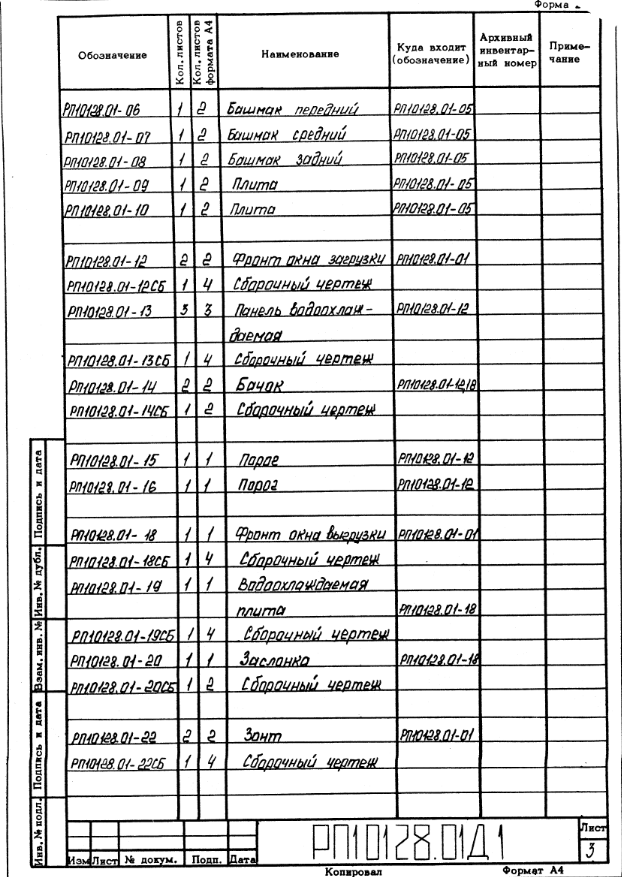 Форма
Обозначение Кол. листов Кол. листов формата А4 Наименование Куда входит (обозначение) Архивный инвентарный номер Примечание
РП10128.01-06 1 2 Башмак передний РП10128.01-05
РП10128.01-07 1 2 Башмак средний РП10128.01-05
РП10128.01-08 1 2 Башмак задний РП10128.01-05
РП10128.01-09 1 2 Плита РП10128.01-05
РП10128.01-10 1 2 Плита РП10128.01-05
РП10128.01-12 2 2 Фронт окна загрузки РП10128.01-01
РП10128.01-12СБ 1 4 Сборочный чертеж
РП10128.01-13 3 3 Панель водоохлаж- РП10128.01-12
даемая
РП10128.01-13СБ 1 4 Сборочный чертеж
РП10128.01-14 2 2 Бачок РП10128.01-12,18
РП10128.01-14СБ 1 2 Сборочный чертеж
РП10128.01-15 1 1 Порог РП10128.01-12
РП10128.01-16 1 1 Порог РП10128.01-12
РП10128.01-18 1 1 Фронт окна выгрузки РП10128.01-01
РП10128.01-18СБ 1 4 Сборочный чертеж
РП10128.01-19 1 1 Водоохлаждаемая
плита РП10128.01-18
РП10128.01-19СБ 1 4 Сборочный чертеж
РП10128.01-20 1 1 Заслонка РП10128.01-18
РП10128.01-20СБ 1 2 Сборочный чертеж
РП10128.01-22 2 2 Зонт РП10128.01-01
РП10128.01-22СБ 1 4 Сборочный чертеж
Подпись и дата
Инв. № дубл.
Взам. инв. №
Подпись и дата
Инв. № подл.
РП10128.01Д1
Лист
3
Изм Лист № докум. Подп. Дата
Копировал Формат А4